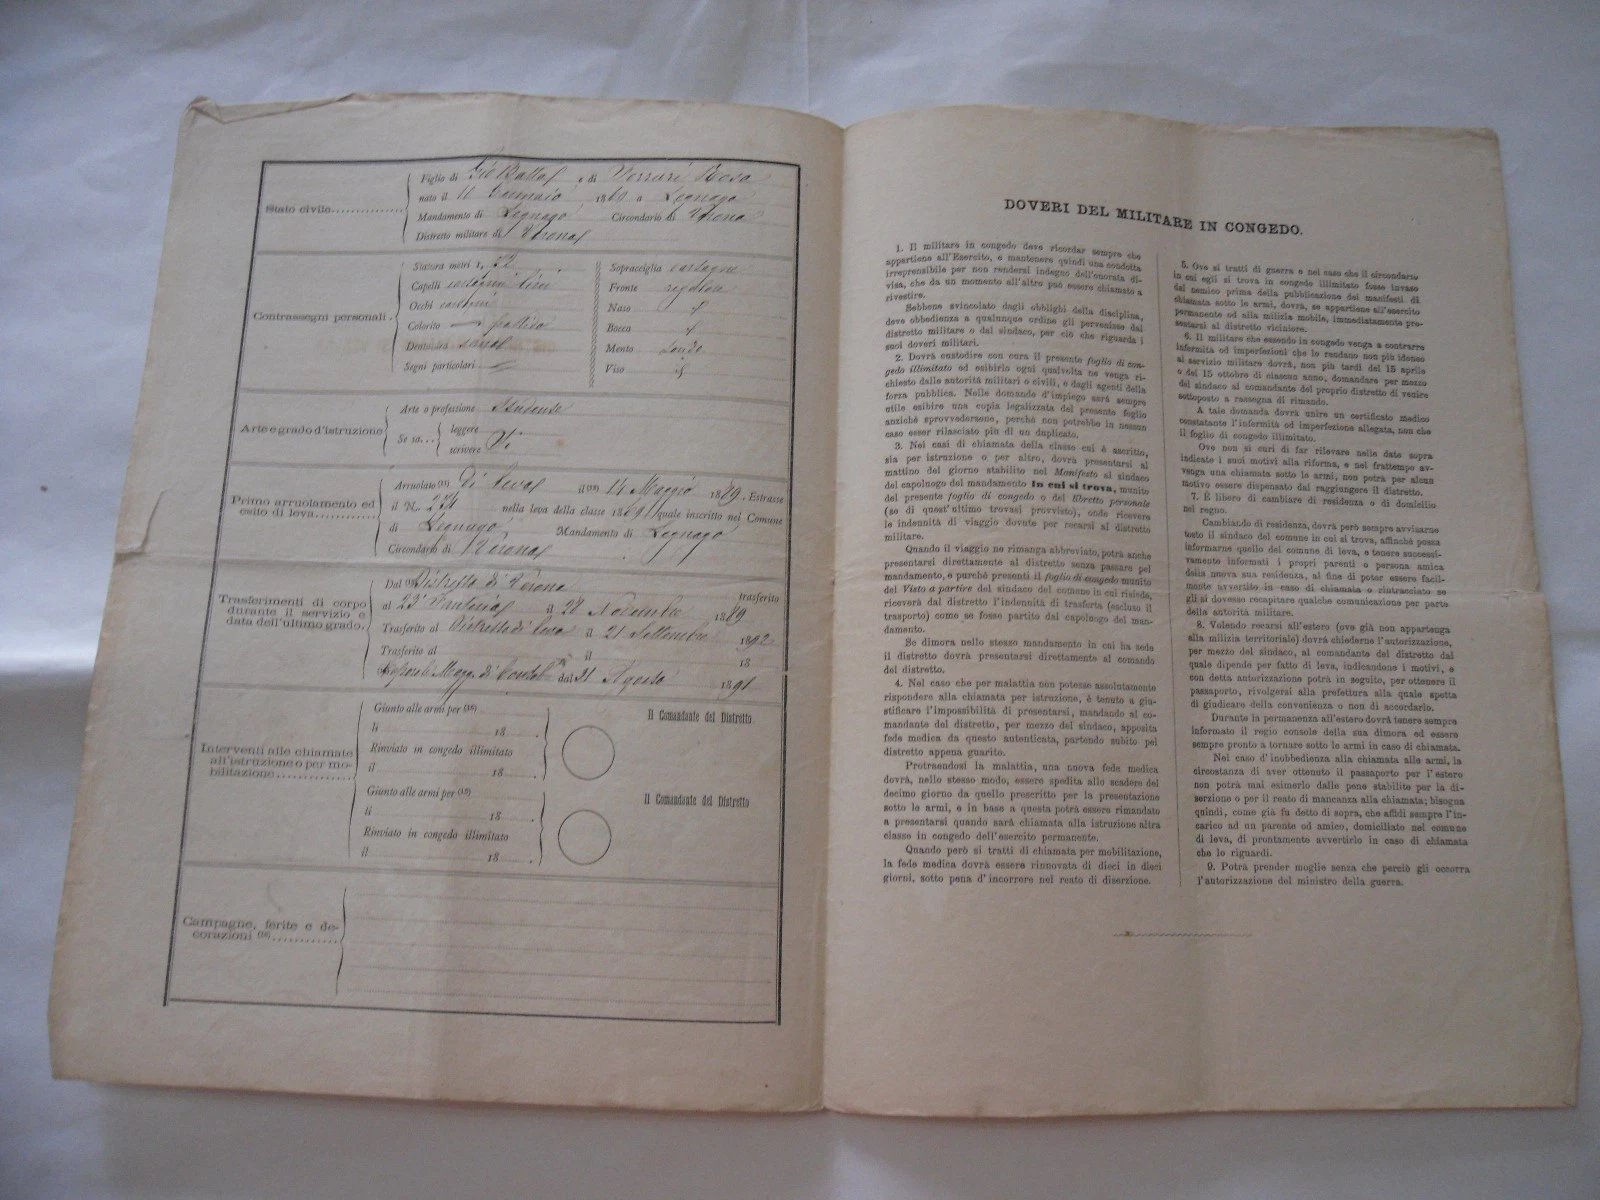 Stato civile
Figlio di Gio Batta e di Ferrari Rosa
nato il Gennaio 1869 a Legnago
Mandamento di Legnago Circondario di Verona
Distretto militare di Verona
Contrassegni personali
Statura metri 1, 72
Capelli castagni lisci
Occhi castani
Colorito pallido
Dentatura sana
Segni particolari
Sopracciglia castagne
Fronte regolare
Naso
Bocca
Mento tondo
Viso
Arte e grado d'istruzione
Arte o professione Studente
Se sa... leggere
scrivere Si
Primo arruolamento ed
esito di leva
Arruolato (11) Di leva il (12) 14 Maggio 1889. Estrasse
il N. 274 nella leva della classe 1869 quale inscritto nel Comune
di Legnago Mandamento di Legnago
Circondario di Verona
Trasferimenti di corpo
durante il servizio e
data dell'ultimo grado.
Dal Distretto di Verona trasferito
al 23° Fanteria il 22 Novembre 1889
Trasferito al Distretto di leva il 21 Settembre 1892
Trasferito al il 18
Caporal Magg. di Contab dal 31 Agosto 1891
Interventi alle chiamate
all'istruzione o per mo-
bilitazione
Giunto alle armi per (13)
li 18
Rinviato in congedo illimitato
il 18
Il Comandante del Distretto
Giunto alle armi per (13)
li 18
Rinviato in congedo illimitato
il 18
Il Comandante del Distretto
Campagne, ferite e de-
corazioni
DOVERI DEL MILITARE IN CONGEDO.
1. Il militare in congedo deve ricordar sempre che
appartiene all'Esercito, e mantenere quindi una condotta
irreprensibile per non rendersi indegno dell'onorata di-
visa, che da un momento all'altro può essere chiamato a
rivestire.
Sebbene svincolato dagli obblighi della disciplina,
deve obbedienza a qualunque ordine gli pervenisse dal
distretto militare o dal sindaco, per ciò che riguarda i
suoi doveri militari.
2. Dovrà custodire con cura il presente foglio di con-
gedo illimitato ed esibirlo ogni qualvolta ne venga ri-
chiesto dalle autorità militari o civili, e dagli agenti della
forza pubblica. Nelle domande d'impiego sarà sempre
utile esibire una copia legalizzata del presente foglio
anzichè sprovvedersene, perchè non potrebbe in nessun
caso esser rilasciato più di un duplicato.
3. Nei casi di chiamata della classe cui è ascritto,
sia per istruzione o per altro, dovrà presentarsi al
mattino del giorno stabilito nel Manifesto al sindaco
del capoluogo del mandamento in cui si trova, munito
del presente foglio di congedo o del libretto personale
(se di quest'ultimo trovasi provvisto), onde ricevere
le indennità di viaggio dovute per recarsi al distretto
militare.
Quando il viaggio ne rimanga abbreviato, potrà anche
presentarsi direttamente al distretto senza passare pel
mandamento, e purchè presenti il foglio di congedo munito
del Visto a partire del sindaco del comune in cui risiede,
riceverà dal distretto l'indennità di trasferta (escluso il
trasporto) come se fosse partito dal capoluogo del man-
damento.
Se dimora nello stesso mandamento in cui ha sede
il distretto dovrà presentarsi direttamente al comando
del distretto.
4. Nel caso che per malattia non potesse assolutamente
rispondere alla chiamata per istruzione, è tenuto a giu-
stificare l'impossibilità di presentarsi, mandando al co-
mandante del distretto, per mezzo del sindaco, apposita
fede medica da questo autenticata, partendo subito pel
distretto appena guarito.
Protraendosi la malattia, una nuova fede medica
dovrà, nello stesso modo, essere spedita allo scadere del
decimo giorno da quello prescritto per la presentazione
sotto le armi, e in base a questa potrà essere rimandato
a presentarsi quando sarà chiamata alla istruzione altra
classe in congedo dell'esercito permanente.
Quando però si tratti di chiamata per mobilitazione,
la fede medica dovrà essere rinnovata di dieci in dieci
giorni, sotto pena d'incorrere nel reato di diserzione.
5. Ove si tratti di guerra e nel caso che il circondario
in cui egli si trova in congedo illimitato fosse invaso
dal nemico prima della pubblicazione dei manifesti di
chiamata sotto le armi, dovrà, se appartiene all'esercito
permanente od alla milizia mobile, immediatamente pre-
sentarsi al distretto viciniore.
6. Il militare che essendo in congedo venga a contrarre
infermità od imperfezioni che lo rendano non più idoneo
al servizio militare dovrà, non più tardi del 15 aprile
o del 15 ottobre di ciascun anno, domandare per mezzo
del sindaco al comandante del proprio distretto di venire
sottoposto a rassegna di rimando.
A tale domanda dovrà unire un certificato medico
constatante l'infermità od imperfezione allegata, non che
il foglio di congedo illimitato.
Ove non si curi di far rilevare nelle date sopra
indicate i suoi motivi alla riforma, e nel frattempo av-
venga una chiamata sotto le armi, non potrà per alcun
motivo essere dispensato dal raggiungere il distretto.
7. È libero di cambiare di residenza o di domicilio
nel regno.
Cambiando di residenza, dovrà però sempre avvisarne
tosto il sindaco del comune in cui si trova, affinchè possa
informarne quello del comune di leva, e tenere successi-
vamente informati i propri parenti o persona amica
della nuova sua residenza, al fine di poter essere facil-
mente avvertito in caso di chiamata o rintracciato se
gli si dovesse recapitare qualche comunicazione per parte
della autorità militare.
8. Volendo recarsi all'estero (ove già non appartenga
alla milizia territoriale) dovrà chiederne l'autorizzazione,
per mezzo del sindaco, al comandante del distretto dal
quale dipende per fatto di leva, indicandone i motivi, e
con detta autorizzazione potrà in seguito, per ottenere il
passaporto, rivolgersi alla prefettura alla quale spetta
di giudicare della convenienza o non di accordarlo.
Durante la permanenza all'estero dovrà tenere sempre
informato il regio console della sua dimora ed essere
sempre pronto a tornare sotto le armi in caso di chiamata.
Nel caso d'inobbedienza alla chiamata alle armi, la
circostanza di aver ottenuto il passaporto per l'estero
non potrà mai esimerlo dalle pene stabilite per la di-
serzione o per il reato di mancanza alla chiamata; bisogna
quindi, come già fu detto di sopra, che affidi sempre l'in-
carico ad un parente od amico, domiciliato nel comune
di leva, di prontamente avvertirlo in caso di chiamata
che lo riguardi.
9. Potrà prender moglie senza che perciò gli occorra
l'autorizzazione del ministro della guerra.